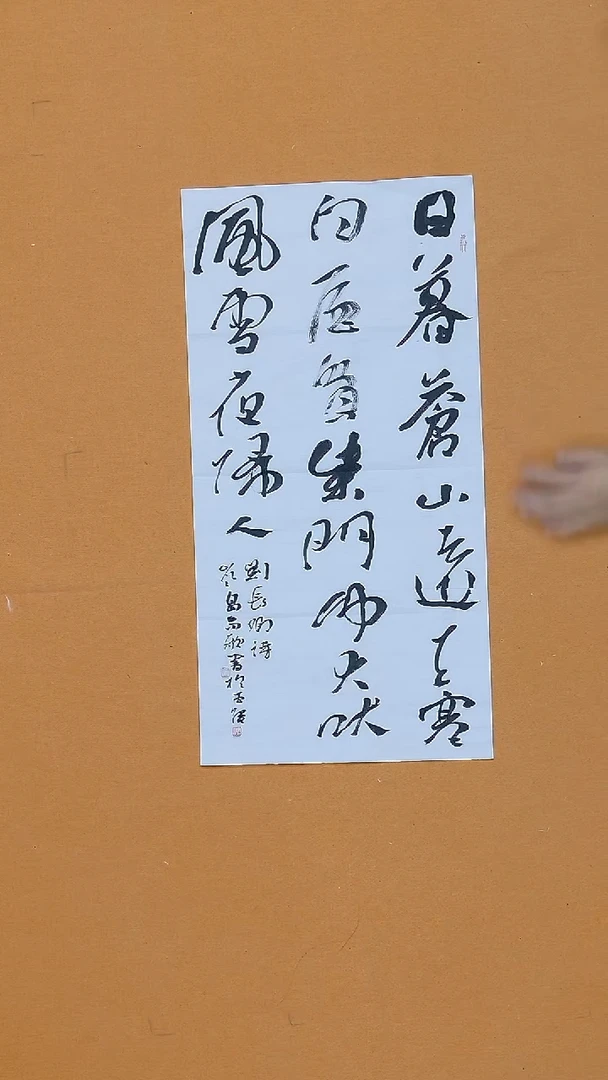 日暮蒼山遠天寒
白屋貧柴門聞犬吠
風雪夜歸人
劉長卿詩
書於